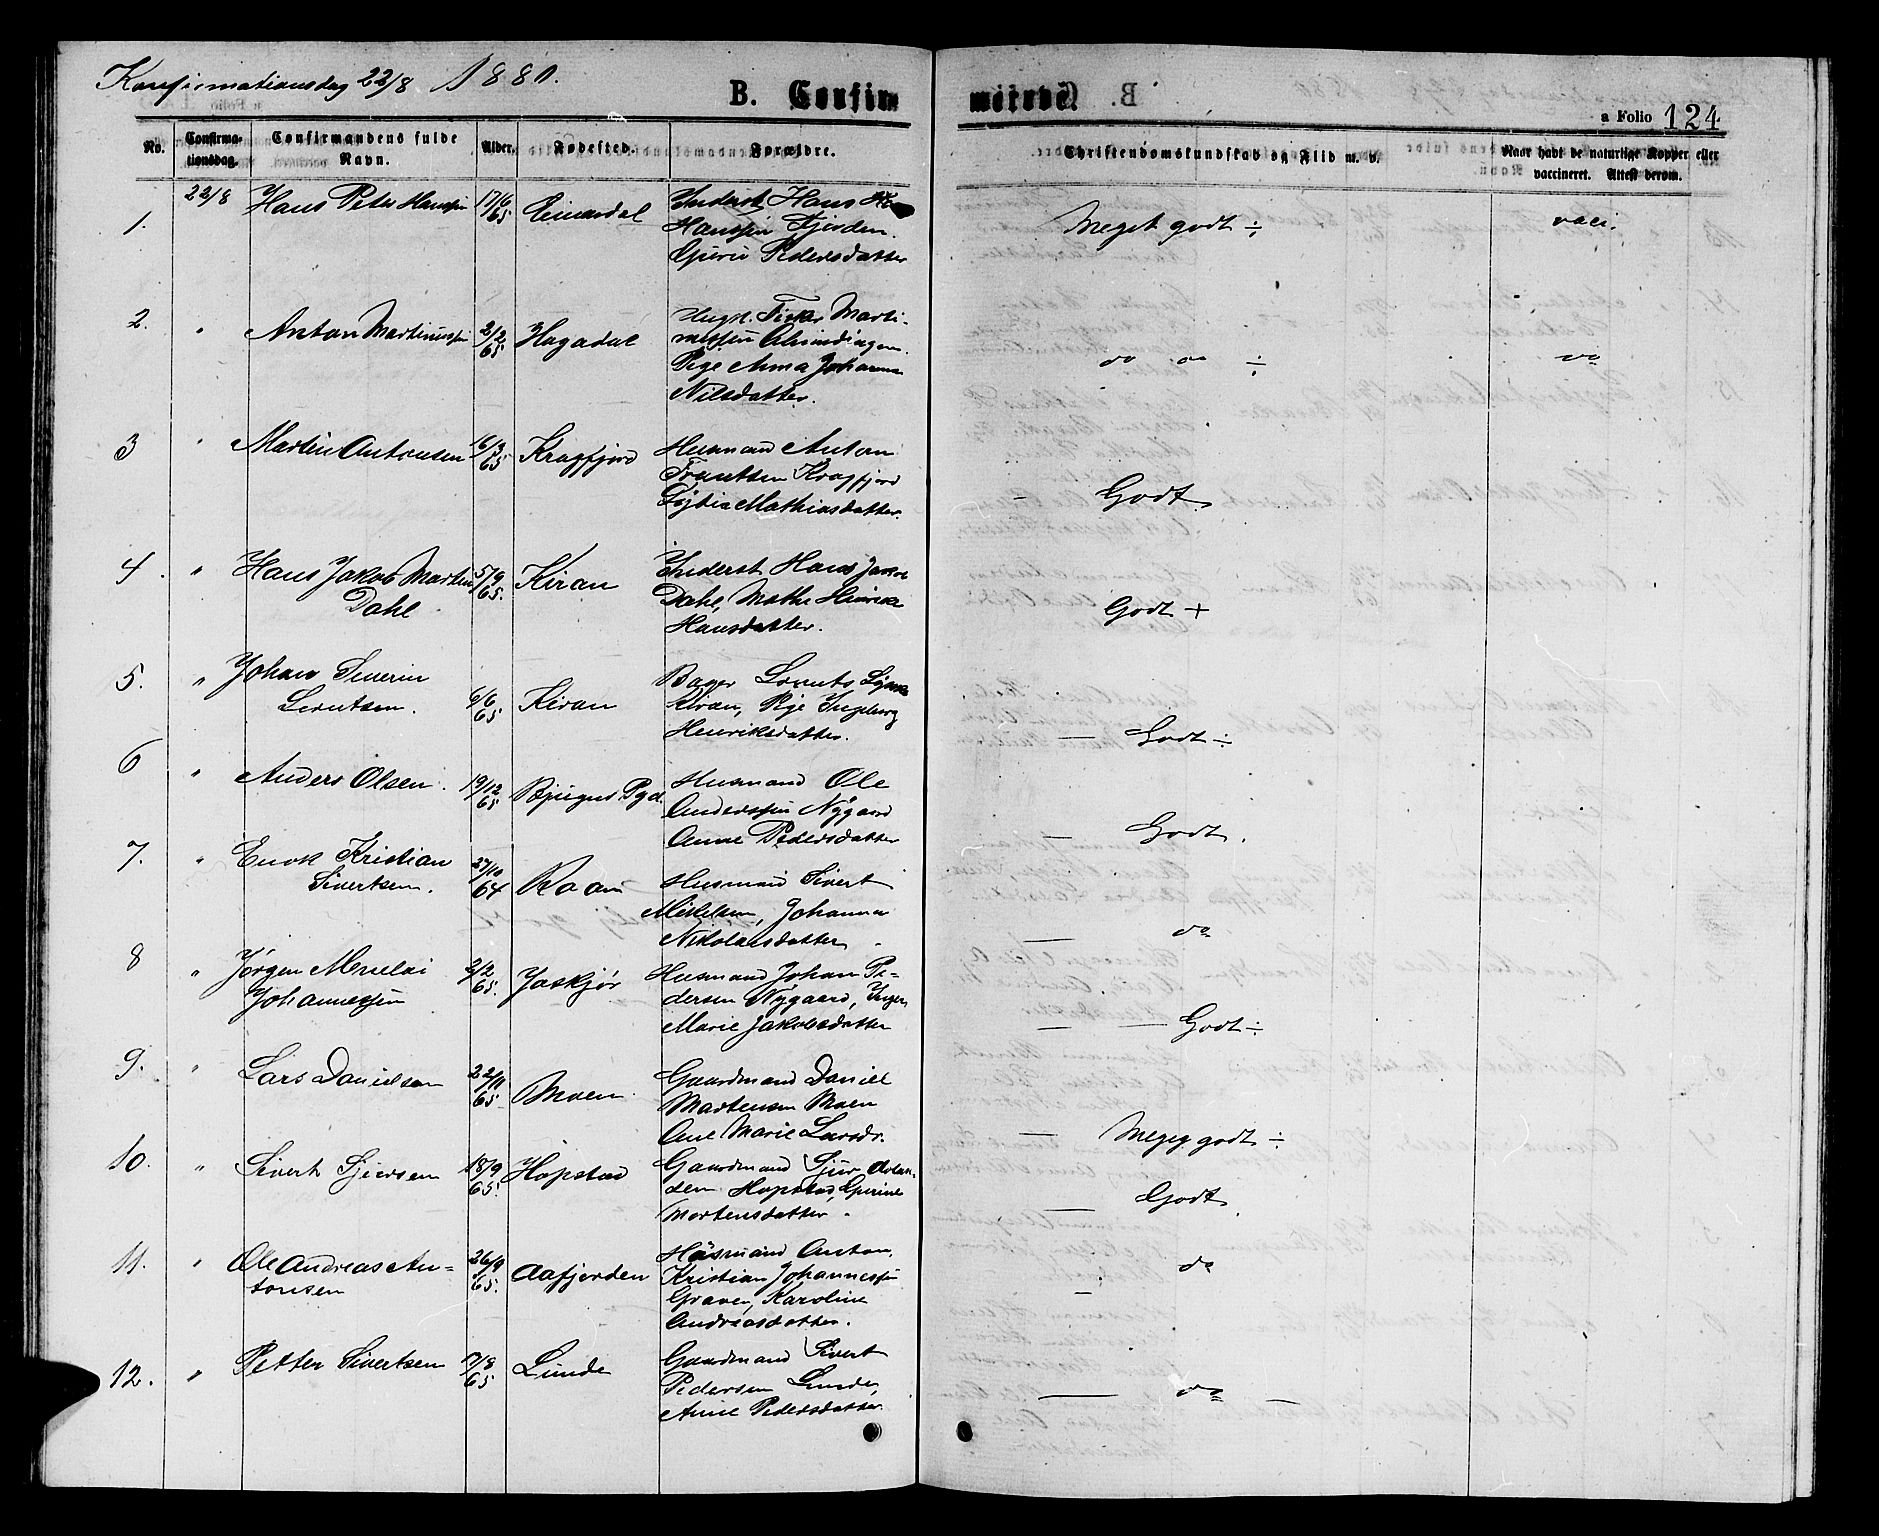 Konfirmationsdag 22/8 1880.
B. Confirmerede.
a Folio 124
No. Confirmationsdag. Confirmandens fulde Navn. Alder. Fødested. Forældre. Christendomskundskab og Flid m. v. Naar havt de naturlige Kopper eller vaccineret. Attest derom.
1. 22/8 Hans Peter Hanssen 17/6 65 Inderst Hans
Hanssen Fjorden.
Guru Pedersdatter
Meget godt ÷ vacc.
2. " Anton Martinussen 2/2 65 Hagadal
Pige Anna Johanna
Nilsdatter.
do do ÷ do
3 " Martin Antonsen 16/3 65 Kragfjord Husmand Anton
Frantsen Kragfjord
Mathiasdatter.
Godt
4. " Hans Jakob Martin Dahl 5/9 65. Kiran Inderst Hans Jakob
Dahl, Marthe Henrikke
Hansdatter.
Godt +
5. " Johan Severin Lorntsen. 6/6 65 Kiran Lornts
Kiran, Pige Ingeborg
Henriksdatter.
— Godt ÷
6 " Anders Olsen. 19/12 65 Bjugns Pgd. Husmand Ole
Anderssen Nygaard
Anne Pedersdatter
— Godt.
7. " Enok Kristian Sivertsen. 27/10 64 Roan Husmand Sivert
Mikkelsen, Johanna
Nikolaisdatter
— do
8 " Jørgen Johannessen 2/2 65. Jøskjør Husmand Johan Pe-
dersen Nygaard, Inger
Marie Jakobsdatter
— — Godt ÷
9. " Lars Danielsen 22/11 65 Moen Gaardmand Daniel
Martensen Moen
Ane Marie Larsdr.
— Megeg godt ÷
10. " Sivert Sjursen 18/9 65. Hopstad Gaardmand Sjur
Hopstad, Gurine
Mortensdatter.
— Godt.
11. " Ole Andreas An-
tonsen 26/9 65. Aafjorden Husmand Anton
Kristian Johannessen
Graven, Karoline
Andreasdatter.
— do
12. " Petter Sivertsen 17/8 65 Lunde Gaardmand Sivert
Pedersen Lunde,
Anne Pedersdatter.
— do —